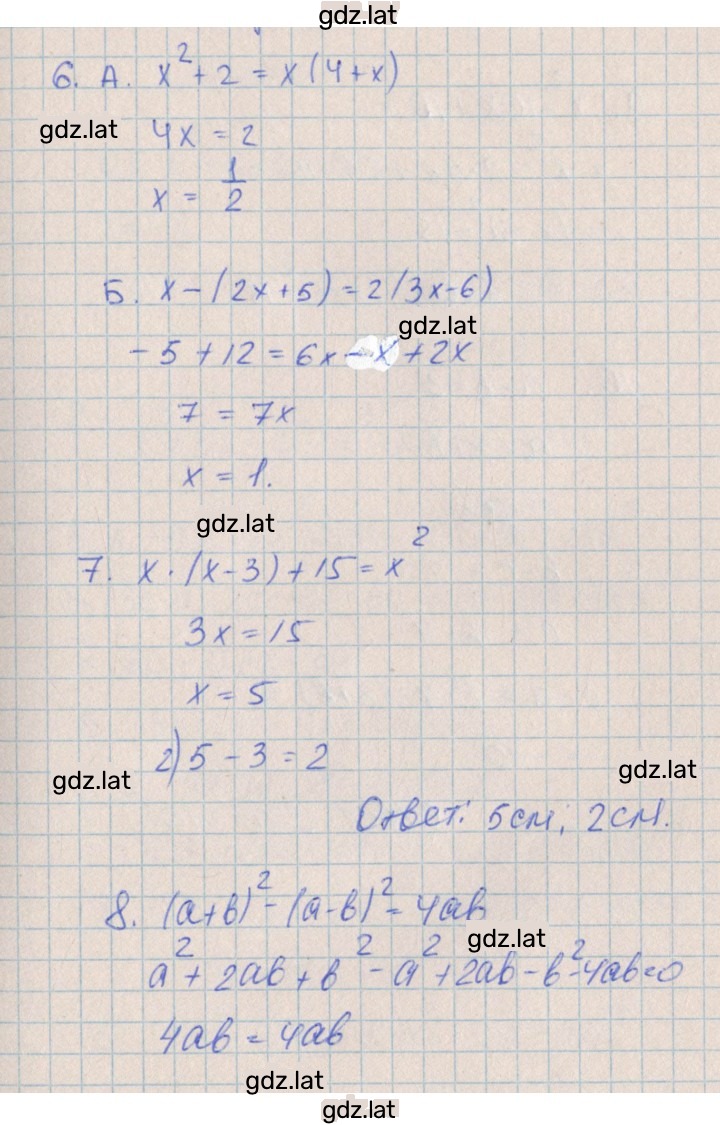 gdz.lat
6. А. x² + 2 = x(4+x)
gdz.lat
4x = 2
x = 1/2
Б. x-(2x+5) = 2(3x-6)
gdz.lat
-5+12 = 6x-x+2x
7 = 7x
x = 1.
gdz.lat
7. x·(x-3)+15 = x²
3x = 15
x = 5
2) 5-3 = 2
gdz.lat
gdz.lat
Ответ: 5см, 2см.
8. (a+b)² - (a-b)² = 4ab
gdz.lat
a² + 2ab + b² - a² + 2ab - b² - 4ab = 0
4ab = 4ab
gdz.lat
gdz.lat